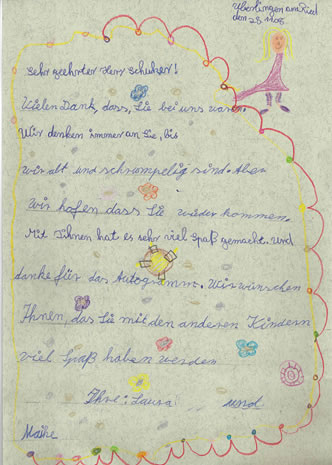 Überlingen am Ried
den 28.11.08
Sehr geehrter Herr Schuhrer!
Vielen Dank, dass, Sie bei uns waren.
Wir denken immer an Sie, bis
wir alt und schrumpelig sind. Aber
wir hofen dass Sie wieder kommen.
Mit Ihnen hat es sehr viel Spaß gemacht. und
danke für das Autogramm. Wir wünschen
Ihnen, das Sie mit den anderen Kindern
viel Spaß haben werden
Ihre: Laura und
Maike